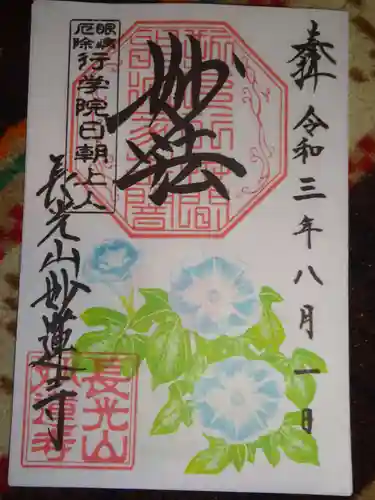 奉拝 令和三年八月一日
妙法
眼病
厄除
行学院日朝上人
長光山妙蓮寺
長光山
妙蓮寺